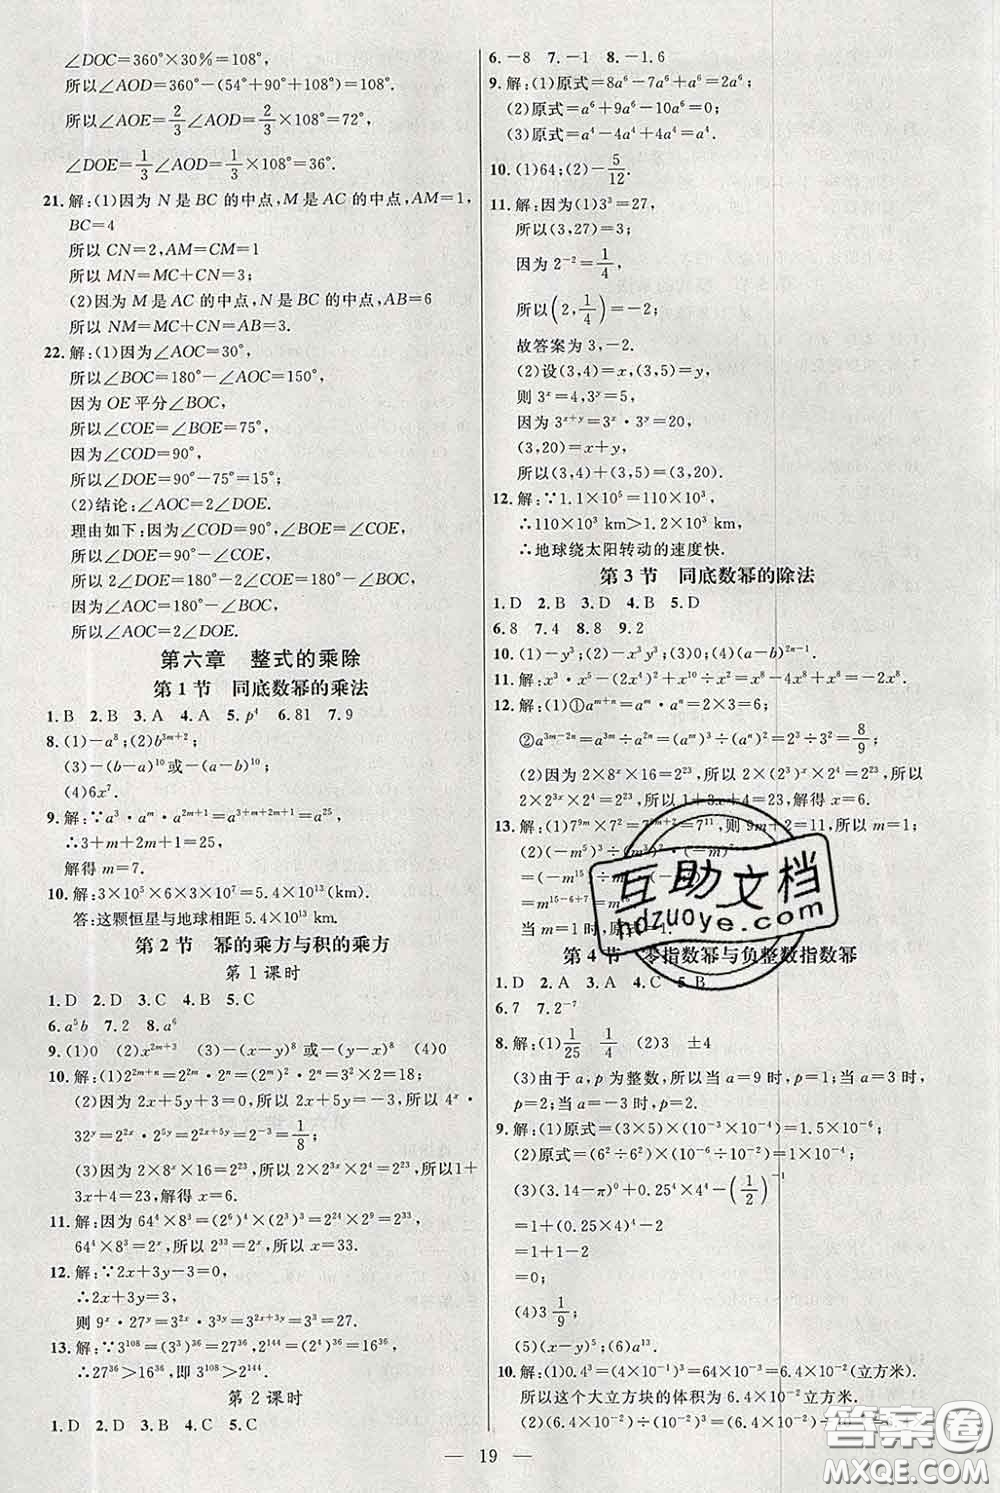 ∠DOC=360°×30%=108°,
所以∠AOD=360°-(54°+90°+108°)=108°.
所以∠AOE=2/3∠AOD=2/3×108°=72°,
∠DOE=1/3∠AOD=1/3×108°=36°.
21.解:(1)因为 N 是 BC 的中点,M 是 AC 的中点,AM=1,
BC=4
所以 CN=2,AM=CM=1
所以 MN=MC+CN=3;
(2)因为 M 是 AC 的中点,N 是 BC 的中点,AB=6
所以 NM=MC+CN=AB=3.
22.解:(1)因为∠AOC=30°,
所以∠BOC=180°-∠AOC=150°,
因为 OE 平分∠BOC,
所以∠COE=∠BOE=75°,
因为∠COD=90°,
所以∠DOE=90°-75°=15°;
(2)结论:∠AOC=2∠DOE.
理由如下:因为∠COD=90°,∠BOE=∠COE,
所以∠DOE=90°-∠COE,
所以 2∠DOE=180°-2∠COE,
因为∠AOC=180°-∠BOC,
所以∠AOC=2∠DOE.
第六章 整式的乘除
第 1 节 同底数幂的乘法
1.B 2.B 3.A 4.A 5.p⁴ 6.81 7.9
8.(1)-a⁸;(2)b^{3m+2};
(3)-(b-a)¹⁰或-(a-b)¹⁰;
(4)6x⁷.
9.解:∵a³·a^m·a^{2m+1}=a^{3+m+2m+1}=a²⁵,
∴3+m+2m+1=25,
解得 m=7.
10.解:3×10⁵×6×3×10⁷=5.4×10¹³(km).
答:这颗恒星与地球相距 5.4×10¹³ km.
第 2 节 幂的乘方与积的乘方
第 1 课时
1.D 2.D 3.C 4.B 5.C
6.a⁵b 7.2 8.a⁶
9.(1)0 (2)x^{2m+3} (3)-(x-y)⁸ 或-(y-x)⁸ (4)0
10.解:(1)2^{2m+n}=2^{2m}·2^n=(2^m)²·2^n=3²×2=18;
(2)因为 2x+5y+3=0,所以 2x+5y=-3,所以 4^x·
32^y=2^{2x}·2^{5y}=2^{2x+5y}=2^{-3}=1/8;
(3)因为 2×8^x×16=2²³,所以 2×2^{3x}×2⁴=2²³,所以1+
3x+4=23,解得 x=6.
11.解:因为 64⁴×8³=(2⁶)⁴×(2³)³=2²⁴×2⁹=2³³,
64⁴×8³=2^x,所以 2^x=2³³,所以 x=33.
12.解:∵2x+3y-3=0,
∴2x+3y=3,
则 9^x·27^y=3^{2x}·3^{3y}=3^{2x+3y}=3³=27.
13.解:∵3¹⁰⁸=(3³)³⁶=27³⁶,2¹⁴⁴=(2⁴)³⁶=16³⁶,
∴27³⁶>16³⁶,即 3¹⁰⁸>2¹⁴⁴.
第 2 课时
1.D 2.D 3.A 4.C 5.C
6.-8 7.-1 8.-1.6
9.解:(1)原式=8a⁶-7a⁶+a⁶=2a⁶;
(2)原式=a⁶+9a⁶-10a⁶=0;
(3)原式=a⁴-4a⁴+4a⁴=a⁴.
10.(1)64;(2)-5/12.
11.解:因为(1)3³=27,
所以(3,27)=3;
因为 2^{-2}=1/4,
所以(2,1/4)=-2;
故答案为 3,-2.
(2)设(3,4)=x,(3,5)=y,
则 3^x=4,3^y=5,
因为 3^{x+y}=3^x·3^y=20,
(3,20)=x+y,
所以(3,4)+(3,5)=(3,20).
12.解:∵1.1×10⁵=110×10³,
∴110×10³ km>1.2×10³ km,
∴地球绕太阳转动的速度快.
第 3 节 同底数幂的除法
1.D 2.B 3.D 4.B 5.D
6.8 7.4 8.8 9.2
10.(1)-y³;(2)-x³;(3)0;(4)(a-b)^{2n-1}.
11.解:x³·x⁵-(2x⁴)²+x¹⁰÷x²=x⁸-4x⁸+x⁸=-2x⁸.
12.解:(1)①a^{m+n}=a^m·a^n=2×3=6;
②a^{3m-2n}=a^{3m}÷a^{2n}=(a^m)³÷(a^n)²=2³÷3²=8/9;
(2)因为 2×8^x×16=2²³,所以 2×(2³)^x×2⁴=2²³,所以
2×2^{3x}×2⁴=2²³,所以 1+3x+4=23,解得 x=6.
13.解:(1)7^{9m}×7^{2}=7^{9m+2}=7¹¹,则 9m+2=11,所以 m=1;
(2)(-m⁵)³÷(-m³)²·(-m)⁷
=(-m¹⁵)÷
=m^{15-6+7}
=m¹⁶
当 m=1时,原式=1.
第 4 节 零指数幂与负整数指数幂
1.D 2.A 3.A 4.C 5.B
6.7 7.2^{-7}
8.解:(1)1/25 1/4 (2)3 ±4
(3)由于 a,p 为整数,所以当 a=9 时,p=1;当 a=3 时,
p=2;当 a=-3 时,p=2.
9.解:(1)原式=(3×5)×(10^{-3}×10^{-4})=1.5×10^{-6};
(2)原式=(6²÷6²)×(10^{-6}÷10^{-6})=1;
(3)(3.14-π)⁰+0.25⁴×4⁴-(1/2)^{-1}
=1+(0.25×4)⁴-2
=1+1-2
=0;
(4)3 1/9;
(5)(x-y)⁵;(6)1.
10.解:(1)0.4³=(4×10^{-1})³=64×10^{-3}=6.4×10^{-2}(立方米).
所以这个大立方块的体积为 6.4×10^{-2}立方米.
(2)(6.4×10^{-2})÷(
19
互助文档
hdzuoye.com
答案圈
MXQE.COM